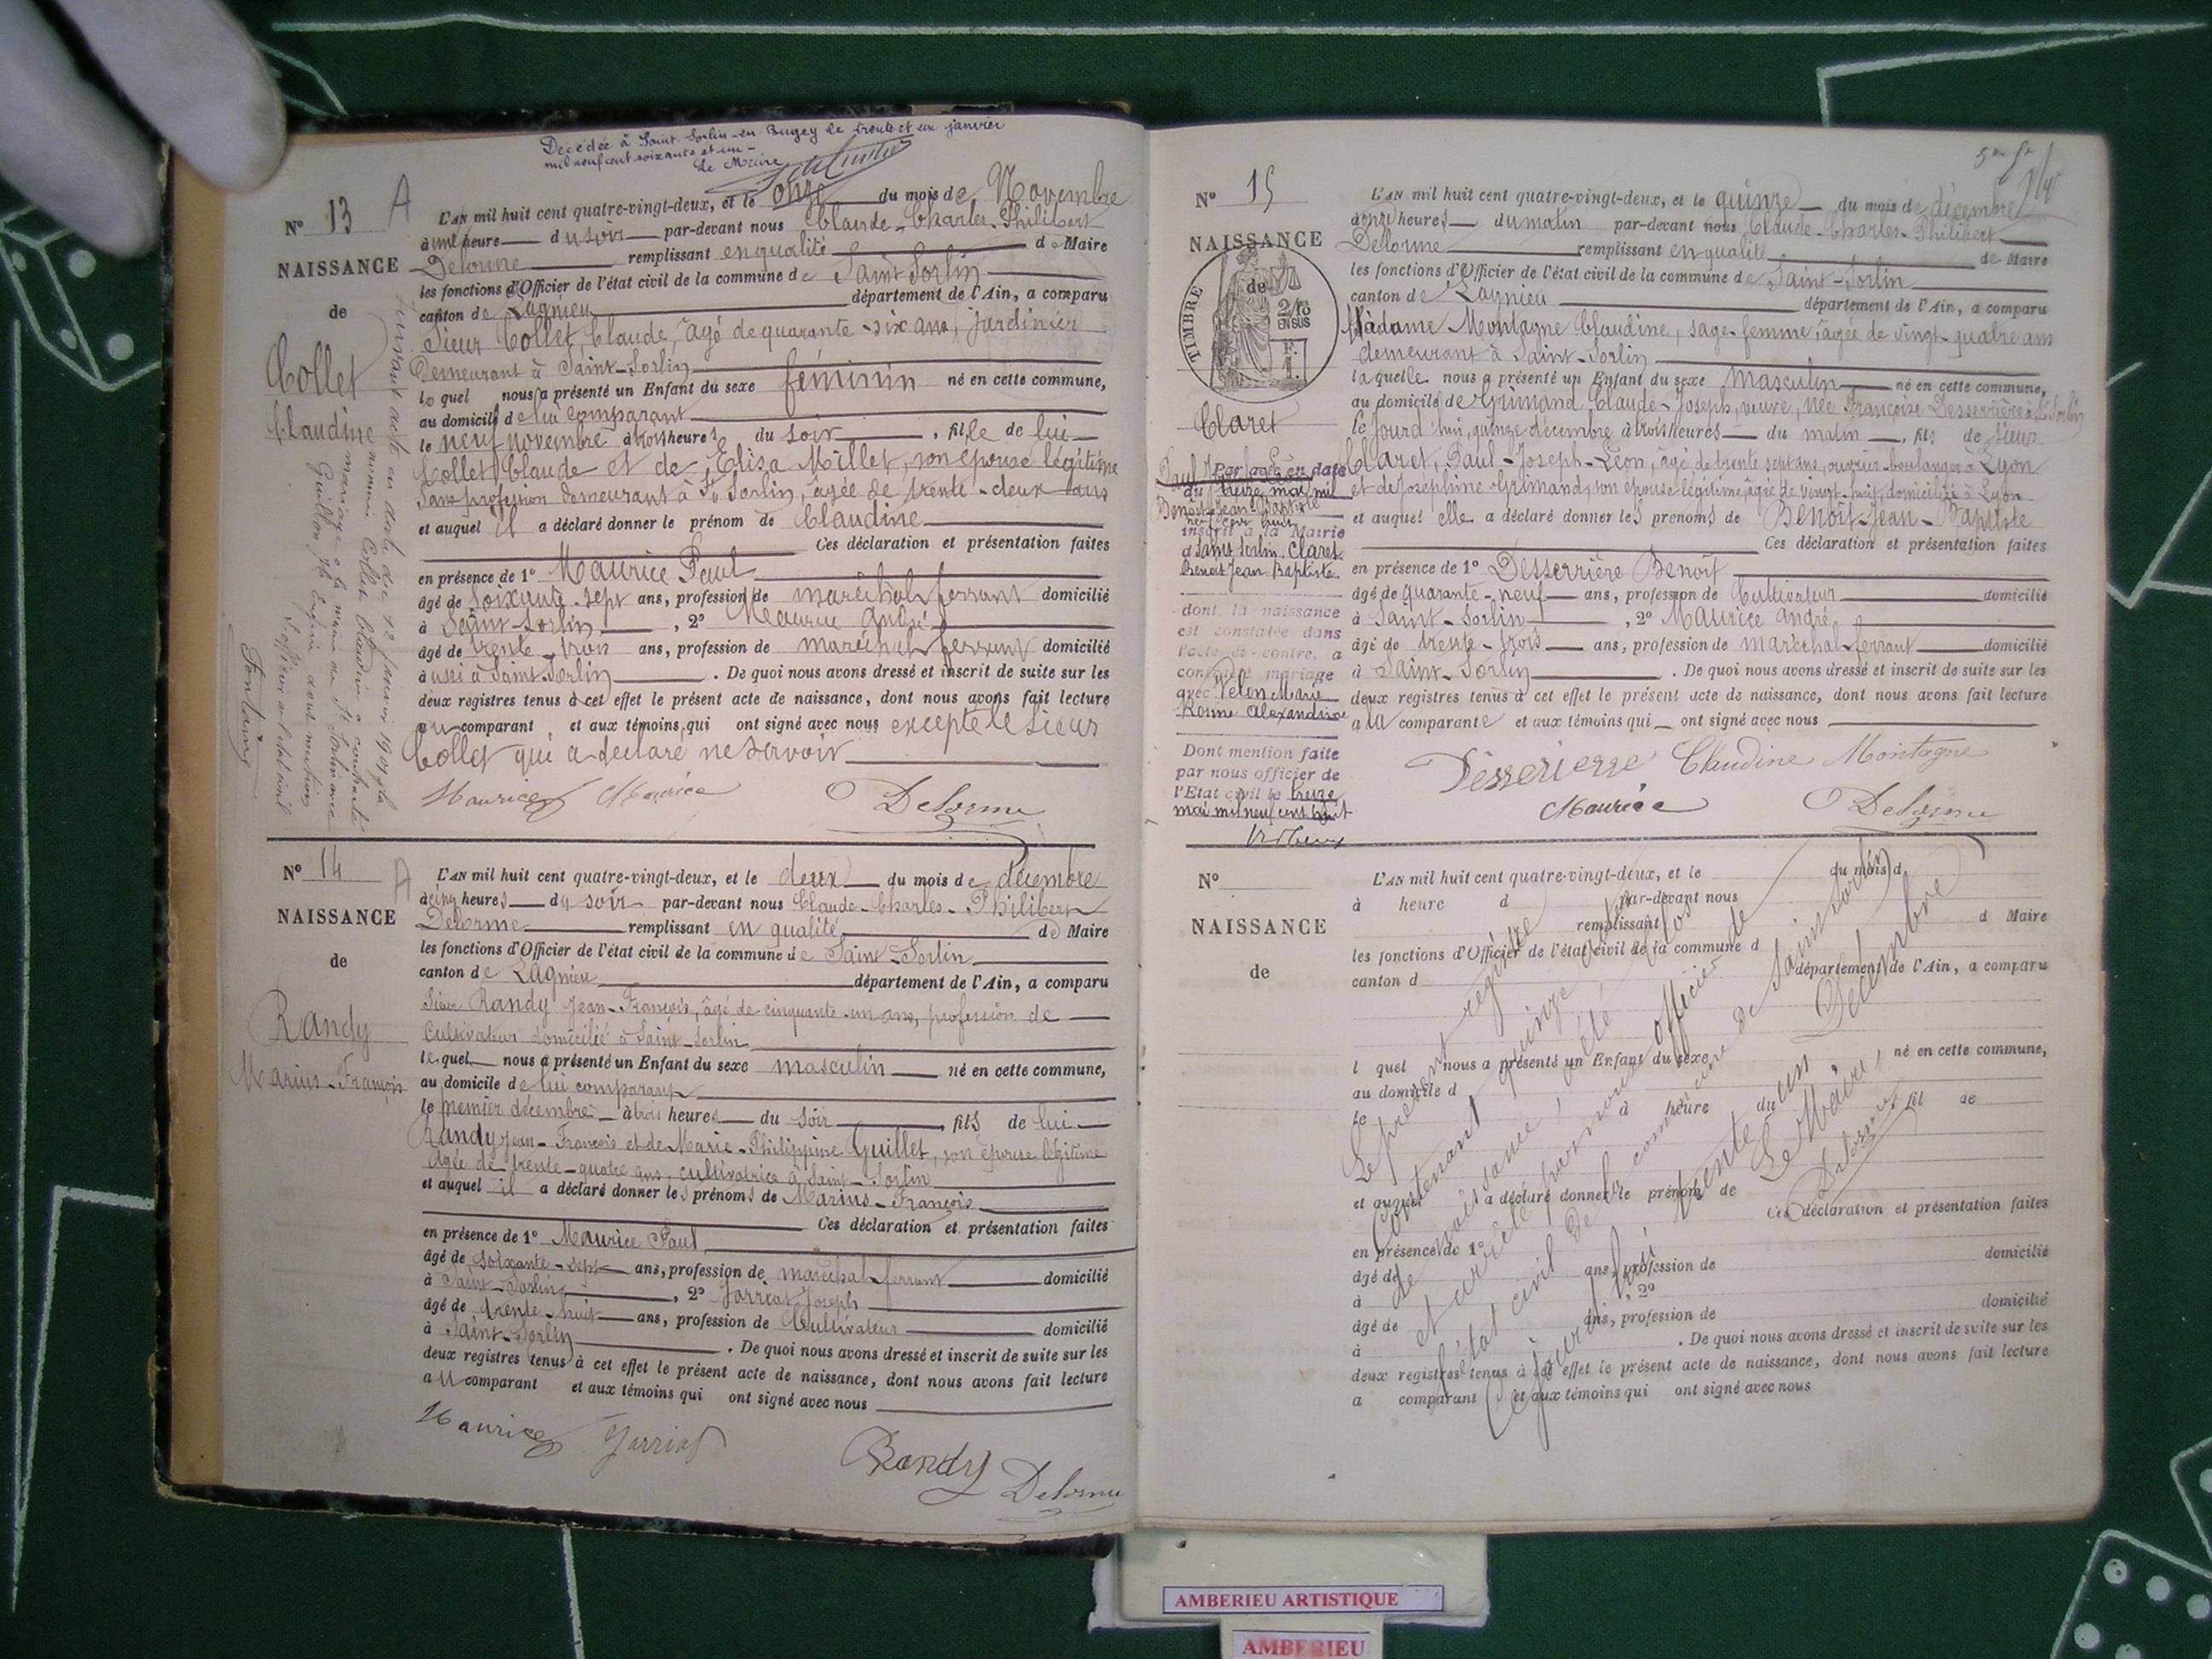 Decédée à Saint-Sorlin-en-Bugey le trente et un janvier
mil neuf cent soixante et un -
Le Maire
N° 13 A
NAISSANCE
de
Collet
Claudine
L'AN mil huit cent quatre-vingt-deux, et le onze du mois de Novembre
à une heure du soir par-devant nous Claude-Charles-Philibert
Delorme remplissant en qualité de Maire
les fonctions d'Officier de l'état civil de la commune de Saint Sorlin
canton de Lagnieu département de l'Ain, a comparu
Sieur Collet, Claude, âgé de quarante-six ans, jardinier
Demeurant à Saint-Sorlin
lequel nous a présenté un Enfant du sexe féminin né en cette commune,
au domicile de lui comparant
le neuf novembre à trois heures du soir, fille de lui
Collet Claude et de Elisa Millet, son épouse légitime
Sans profession demeurant à St Sorlin, âgée de trente-deux ans
et auquel il a déclaré donner le prénom de Claudine
Ces déclaration et présentation faites
en présence de 1° Maurice Paul
âgé de soixante-sept ans, profession de maréchal ferrant domicilié
à Saint-Sorlin, 2° Maurice André
âgé de trente-trois ans, profession de maréchal ferrant domicilié
aussi à Saint-Sorlin. De quoi nous avons dressé et inscrit de suite sur les
deux registres tenus à cet effet le présent acte de naissance, dont nous avons fait lecture
au comparant et aux témoins, qui ont signé avec nous excepté le sieur
Collet qui a déclaré ne savoir
Maurice Maurice Delorme
N° 14 A
NAISSANCE
de
Randy
Marius-François
L'AN mil huit cent quatre-vingt-deux, et le deux du mois de décembre
à cinq heures du soir par-devant nous Claude-Charles-Philibert
Delorme remplissant en qualité de Maire
les fonctions d'Officier de l'état civil de la commune de Saint-Sorlin
canton de Lagnieu département de l'Ain, a comparu
Sieur Randy Jean-François, âgé de cinquante-un ans, profession de
Cultivateur domicilié à Saint-Sorlin
lequel nous a présenté un Enfant du sexe masculin né en cette commune,
au domicile de lui comparant
le premier décembre à trois heures du soir, fils de lui
Randy Jean-François et de Marie-Philippine Guillet, son épouse légitime
âgée de trente-quatre ans, cultivatrice à Saint-Sorlin
et auquel il a déclaré donner les prénoms de Marius-François
Ces déclaration et présentation faites
en présence de 1° Maurice Paul
âgé de soixante-sept ans, profession de maréchal-ferrant domicilié
à Saint-Sorlin, 2° Jarriat Joseph
âgé de trente-huit ans, profession de Cultivateur domicilié
à Saint-Sorlin. De quoi nous avons dressé et inscrit de suite sur les
deux registres tenus à cet effet le présent acte de naissance, dont nous avons fait lecture
au comparant et aux témoins qui ont signé avec nous
Maurice Jarriat Randy Delorme
N° 15
NAISSANCE
de
TIMBRE
2/10
EN SUS
F.
1.
Claret
Benoit-Jean-Baptiste
Par acte en date
du treize mai mil
neuf cent huit
inscrit à la Mairie
d Saint Sorlin Claret
Benoit Jean Baptiste
dont la naissance
est constatée dans
l'acte ci-contre, a
contracté mariage
avec Velon Marie
Alexandrine
Dont mention faite
par nous officier de
l'Etat civil le treize
mai mil neuf cent huit
L'AN mil huit cent quatre-vingt-deux, et le quinze du mois de décembre
à onze heures du matin par-devant nous Claude-Charles-Philibert
Delorme remplissant en qualité de Maire
les fonctions d'Officier de l'état civil de la commune de Saint-Sorlin
canton de Lagnieu département de l'Ain, a comparu
Madame Montagne Claudine, sage-femme, âgée de vingt-quatre ans
demeurant à Saint-Sorlin
laquelle nous a présenté un Enfant du sexe masculin né en cette commune,
au domicile de Grimand Claude-Joseph, veuve, née Françoise Desserrière à St Sorlin
le jourd'hui, quinze décembre à trois heures du matin, fils de sieur
Claret, Paul-Joseph-Léon, âgé de trente sept ans, ouvrier-boulanger à Lyon
et de Joséphine Grimand, son épouse légitime, âgée de vingt-huit, domiciliée à Lyon
et auquel elle a déclaré donner les prénoms de Benoît-Jean-Baptiste
Ces déclaration et présentation faites
en présence de 1° Desserrière Benoît
âgé de quarante-neuf ans, profession de Cultivateur domicilié
à Saint-Sorlin, 2° Maurice André
âgé de trente-trois ans, profession de maréchal-ferrant domicilié
à Saint-Sorlin. De quoi nous avons dressé et inscrit de suite sur les
deux registres tenus à cet effet le présent acte de naissance, dont nous avons fait lecture
a la comparante et aux témoins qui ont signé avec nous
Claudine Montagne
Maurice Delorme
N°
NAISSANCE
de
L'AN mil huit cent quatre-vingt-deux, et le du mois d
à heure d par-devant nous
remplissant d Maire
les fonctions d'Officier de l'état civil de la commune d
canton d département de l'Ain, a comparu
l quel nous a présenté un Enfant du sexe né en cette commune,
au domicile d
le à heure du, fil de
et auquel a déclaré donner le prénom de
Ces déclaration et présentation faites
en présence de 1°
âgé de ans, profession de domicilié
à, 2°
âgé de ans, profession de domicilié
à. De quoi nous avons dressé et inscrit de suite sur les
deux registres tenus à cet effet le présent acte de naissance, dont nous avons fait lecture
a comparant et aux témoins qui ont signé avec nous
Le présent registre
contenant quinze
de naissance, a été clos
et arrêté par nous officier de
l'état civil de la commune de Saint Sorlin
Cejourd'hui trente un Décembre
Le Maire,
Delorme
AMBERIEU ARTISTIQUE
AMBERIEU